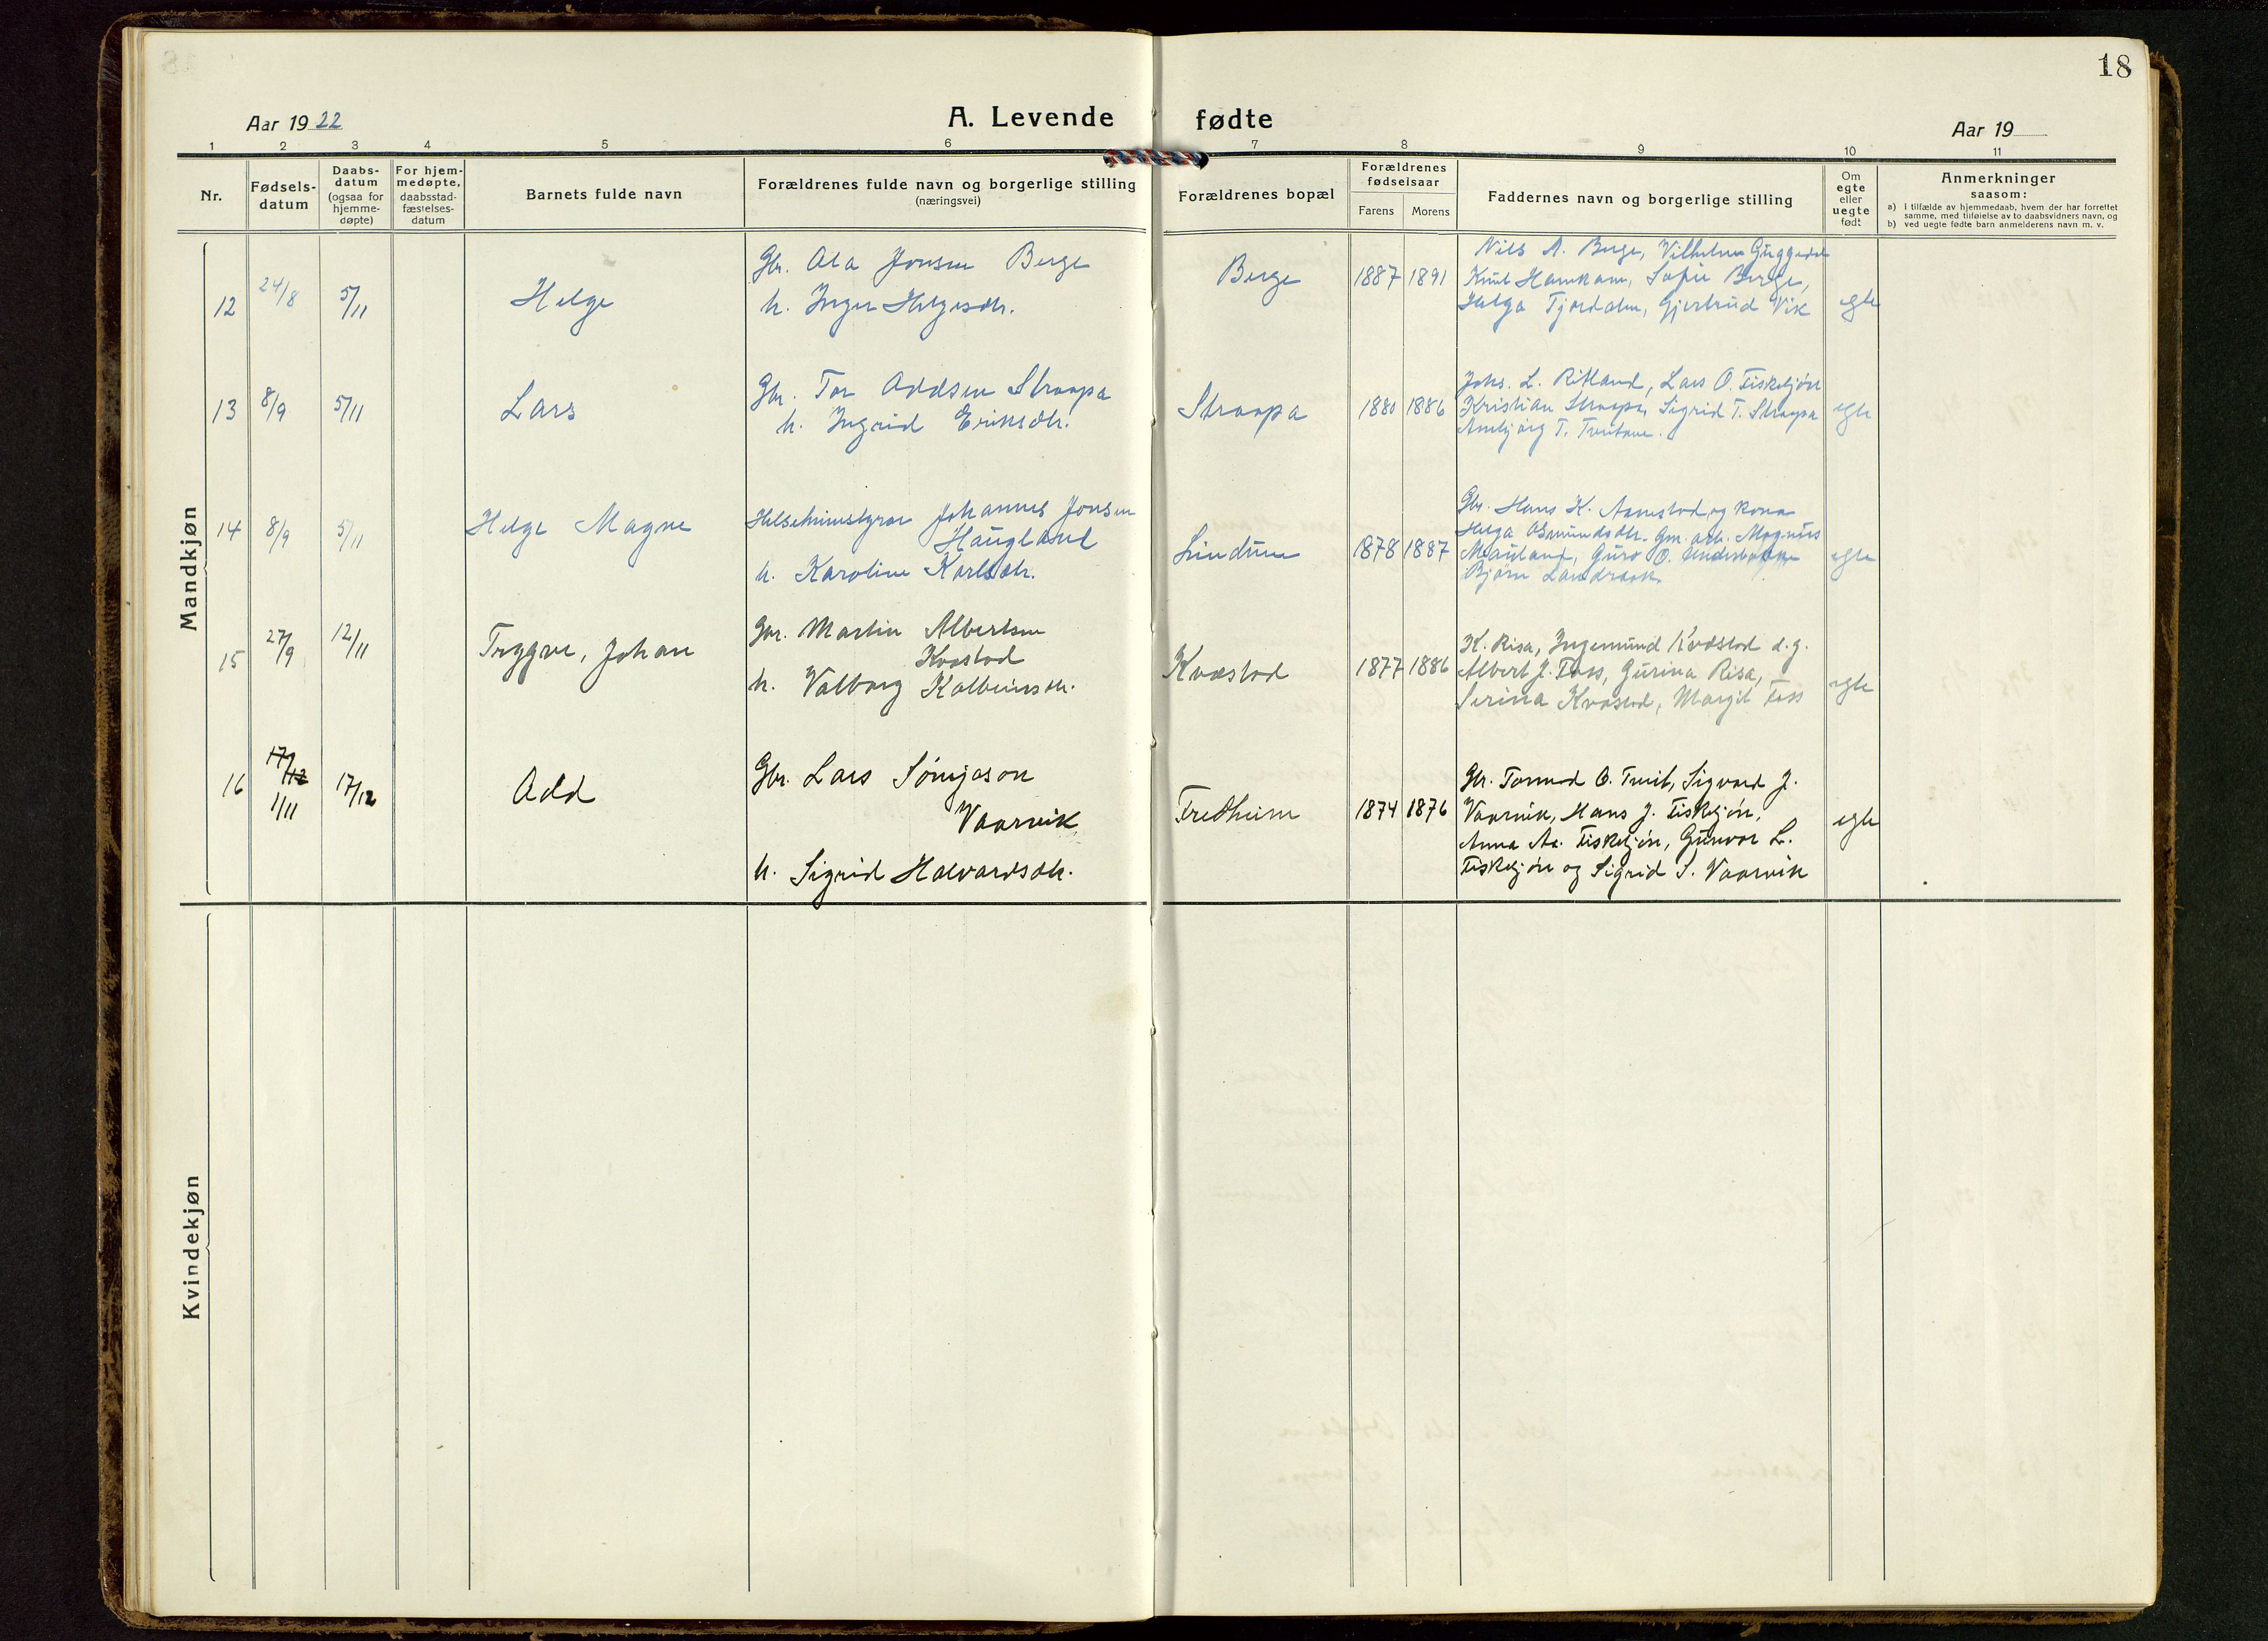 18
Aar 1922
A. Levende fødte
Aar 19
1 2 3 4 5 6 7 8 9 10 11
Nr.
Fødsels-
datum
Daabs-
datum
(ogsaa for
hjemme-
døpte)
For hjem-
medøpte,
daabsstad-
fæstelses-
datum
Barnets fulde navn
Forældrenes fulde navn og borgerlige stilling
(næringsvei)
Forældrenes bopæl
Forældrenes
fødselsaar
Farens Morens
Faddernes navn og borgerlige stilling
Om
egte
eller
uegte
født
Anmerkninger
saasom:
a) I tilfælde av hjemmedaab, hvem der har forrettet
samme, med tilføielse av to daabsvidners navn, og
b) ved uegte fødte barn anmelderens navn m. v.
Mandkjøn
12 24/8 5/11 Helge
Gbr. Ola Jonsen Berge
h. Inger Helgesdtr.
Berge 1887 1891
Nils A. Berge, Vilhelm
Knut Hamkam, Sofie Berge,
Helga Tjordalen, Gjertrud Vik
egte
13 8/9 5/11 Lars
Gbr. Tor Oddsen Straapa
h. Ingrid Eriksdtr.
Straapa 1880 1886
Johs. L. Ritland, Lars O. Fiskekjøn
Kristian Straapa, Sigrid T. Straapa
T.
egte
14 8/9 5/11 Helge Magne
Johannes Jonsen
Haugland
h. Karoline Karlsdtr.
Lindum 1878 1887
Gbr. Hans K. Aanestad og kona
Helga Osmundsdtr. Gm. arb. Magnus
Mauland, Guro O.
Bjørn Landraak.
egte
15 27/9 12/11 Trygve, Johan
Gbr. Martin Albertsen
Kvæstad
h. Valborg Kolbeinsdtr.
Kvæstad 1877 1886
K. Risa, Ingemund Kvæstad d.y.
Albert J. Foss, Gurina Risa,
Serina Kvæstad, Margit Foss
egte
16 17/12 1/11 17/12 Odd
Gbr. Lars Sønjeson
Vaarvik
h. Sigrid Halvardsdtr.
Fredheim 1874 1876
Gbr. Tormod O. Tveit, Sigvard J.
Vaarvik, Hans J. Fiskekjøn,
Anna Aa. Fiskekjøn, Gunvor L.
Fiskekjøn og Sigrid S. Vaarvik
egte
Kvindekjøn